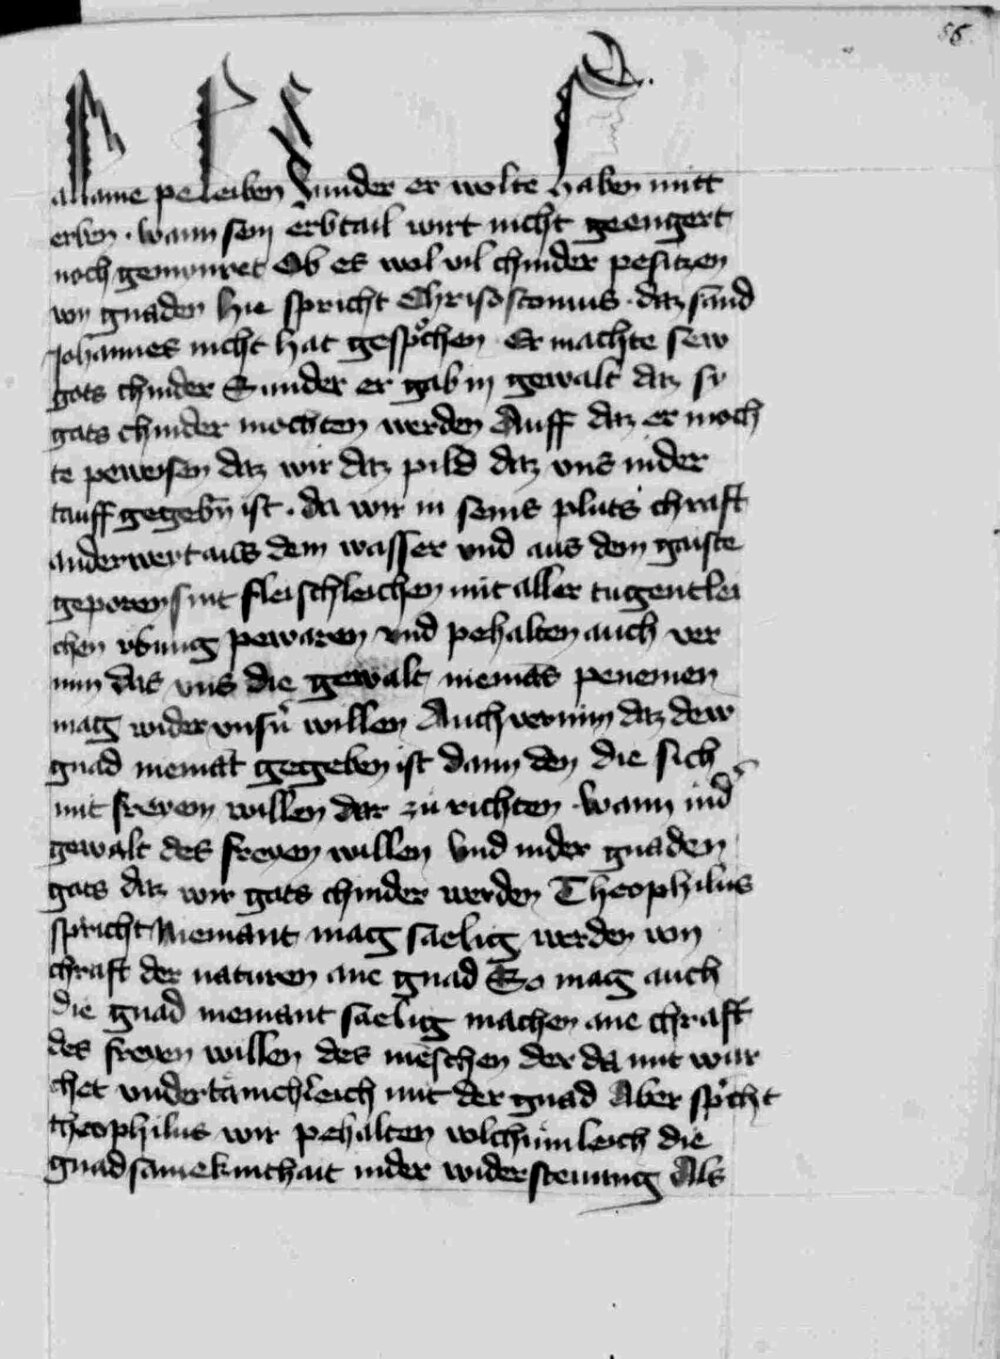 86
allaine peleiben Sunder er wolte haben mitt
erben · wann sein erbtail wirt nicht geengert
noch gemynret Ob es wol vil chinder pesitzen
von gnaden Hie spricht Chrisostomus · daz sand
Johannes nicht hat gesprochen Er machte sew
gots chinder Sunder er gab in gewalt daz sy
gats chinder mochten werden Auff daz er moch
te peweisen daz wir daz pild daz vns inder
tauff gegebn̄ ist · da wir in seins pluts chraft
anderwert aus dem wasser vnd aus dem gaiste
geporen sint fleischleichen mit aller tugentlei
chen vbung pewaren vnd pehalten auch ver
nim das vns die gewalt niemās penemen
mag wider vnsn̄ willen Auch vernim daz dew
gnad niemāt gegeben ist dann den die sich
mit freyem willen dar zu richten · wann ind̾
gewalt des freyen willen vnd inder gnaden
gots daz wir gots chinder werden Theophilus
spricht Niemant mag saelig werden von
chraft der naturen ane gnad So mag auch
die gnad niemant saelig machen ane chraft
des freyen willen des mēschen der da mit wur
chet vndertämchleich mit der gnad Aber sp̾icht
theophilus wir pehalten volchūmleich die
gnadsamekinthait inder widersteuung Als